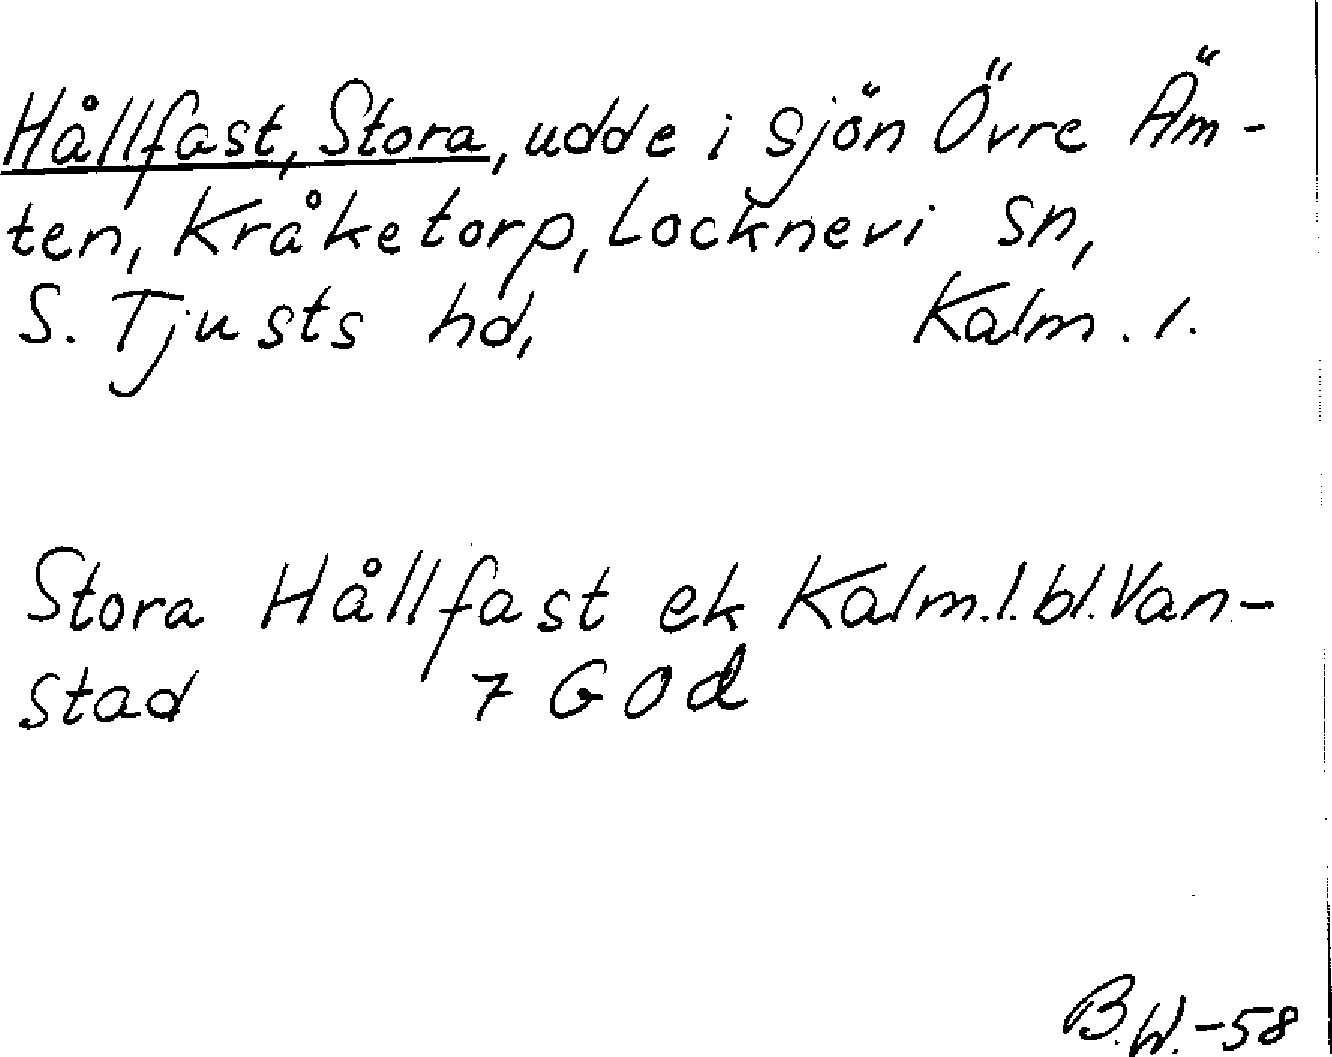 Hållfast, Stora, udde i sjön Övre Äm-
ten, Kråketorp, Locknevi sn,
S. Tjusts hd, Kalm. l.
Stora Hållfast ek Kalm.l.bl. Van-
stad 7 G O d
B.W.-58